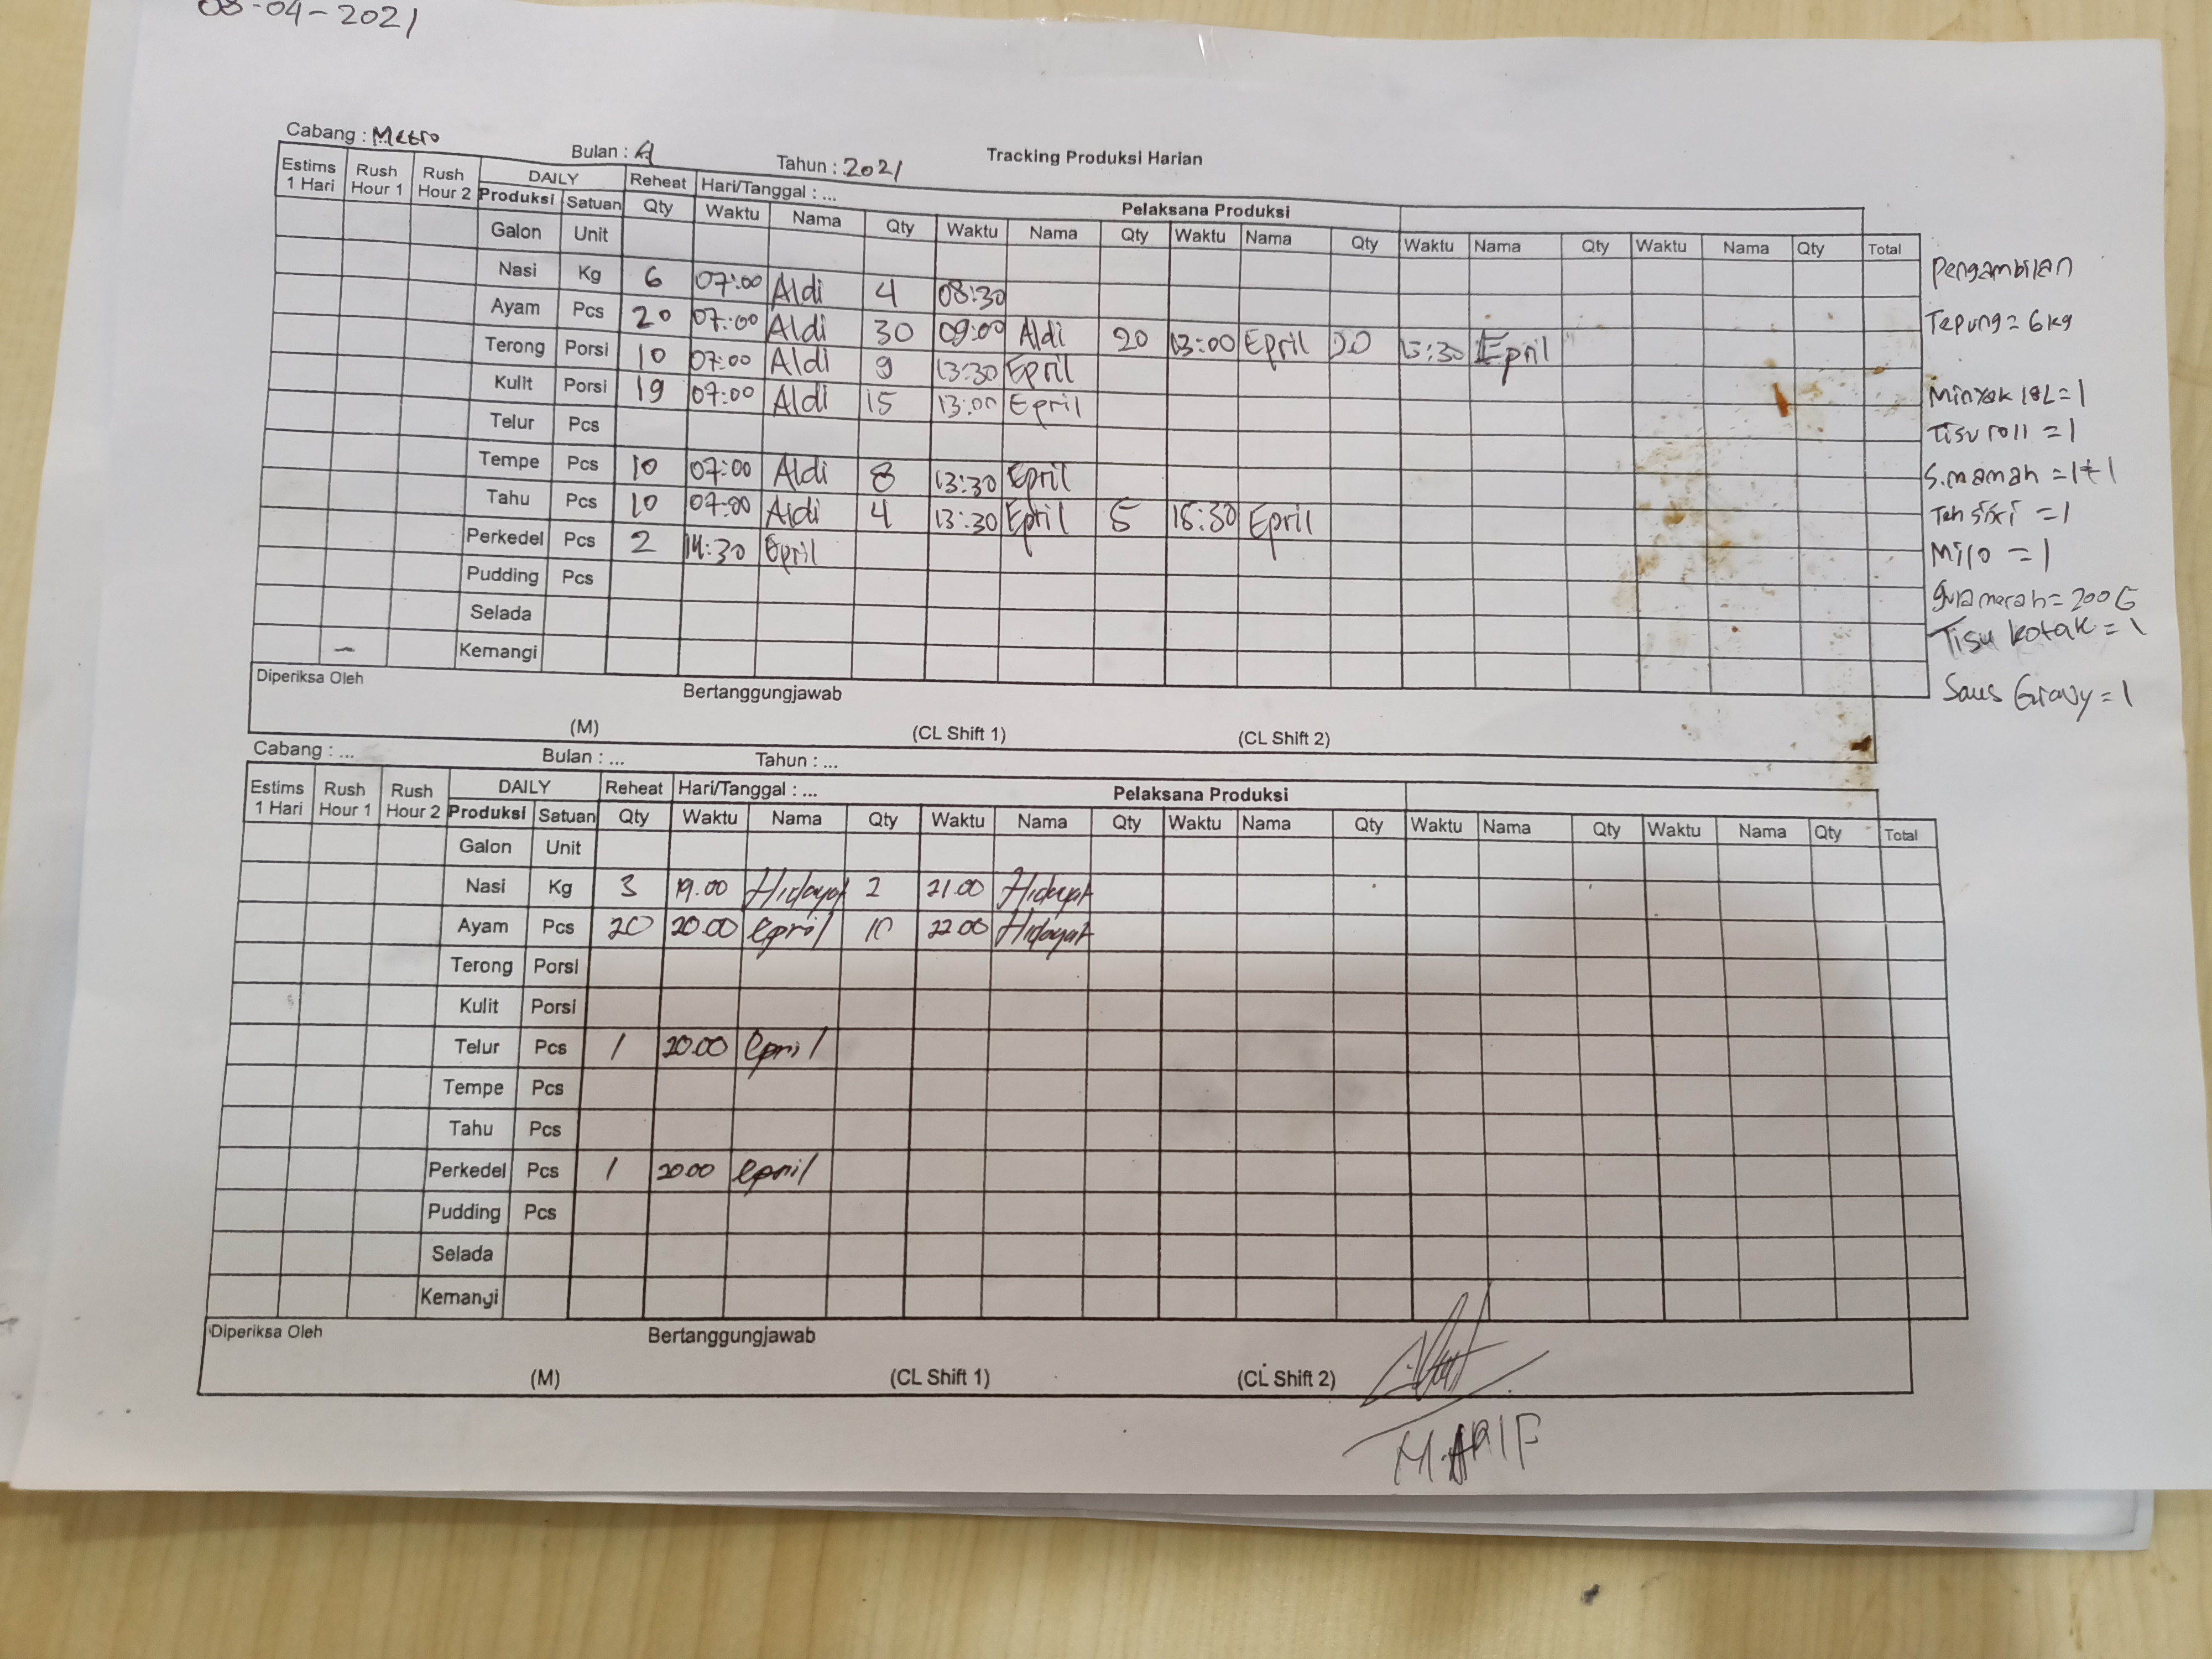 08-04-2021
Cabang : Metro Bulan : 4 Tahun : 2021 Tracking Produksi Harian
Estims 1 Hari Rush Hour 1 Rush Hour 2 DAILY Reheat Hari/Tanggal : ... Pelaksana Produksi
Produksi Satuan Qty Waktu Nama Qty Waktu Nama Qty Waktu Nama Qty Waktu Nama Qty Waktu Nama Qty Total
Galon Unit
Nasi Kg 6 07:00 Aldi 4 08:30
Ayam Pcs 20 07:00 Aldi 30 09:00 Aldi 20 13:00 Epril 20 15:30 Epril
Terong Porsi 10 07:00 Aldi 9 13:30 Epril
Kulit Porsi 19 07:00 Aldi 15 13:00 Epril
Telur Pcs
Tempe Pcs 10 07:00 Aldi 8 13:30 Epril
Tahu Pcs 10 07:00 Aldi 4 13:30 Epril 5 Epril
Perkedel Pcs 2 14:30 Epril
Pudding Pcs
Selada
Kemangi
Diperiksa Oleh Bertanggungjawab
(M) (CL Shift 1) (CL Shift 2)
Pengambilan
Tepung = 6 kg
Minyak 18L = 1
Tisu roll = 1
S.mamah = 1+1
Teh sisri = 1
Milo = 1
gula merah = 200 G
Tisu kotak = 1
Saus Gravy = 1
Cabang : ... Bulan : ... Tahun : ...
Estims 1 Hari Rush Hour 1 Rush Hour 2 DAILY Reheat Hari/Tanggal : ... Pelaksana Produksi
Produksi Satuan Qty Waktu Nama Qty Waktu Nama Qty Waktu Nama Qty Waktu Nama Qty Waktu Nama Qty Total
Galon Unit
Nasi Kg 3 19.00 Hidayat 2 21.00 Hidayat
Ayam Pcs 20 20.00 epril 10 22.00 Hidayat
Terong Porsi
Kulit Porsi
Telur Pcs 1 20.00 epril
Tempe Pcs
Tahu Pcs
Perkedel Pcs 1 20.00 epril
Pudding Pcs
Selada
Kemangi
Diperiksa Oleh Bertanggungjawab
(M) (CL Shift 1) (CL Shift 2)
M.ARIF